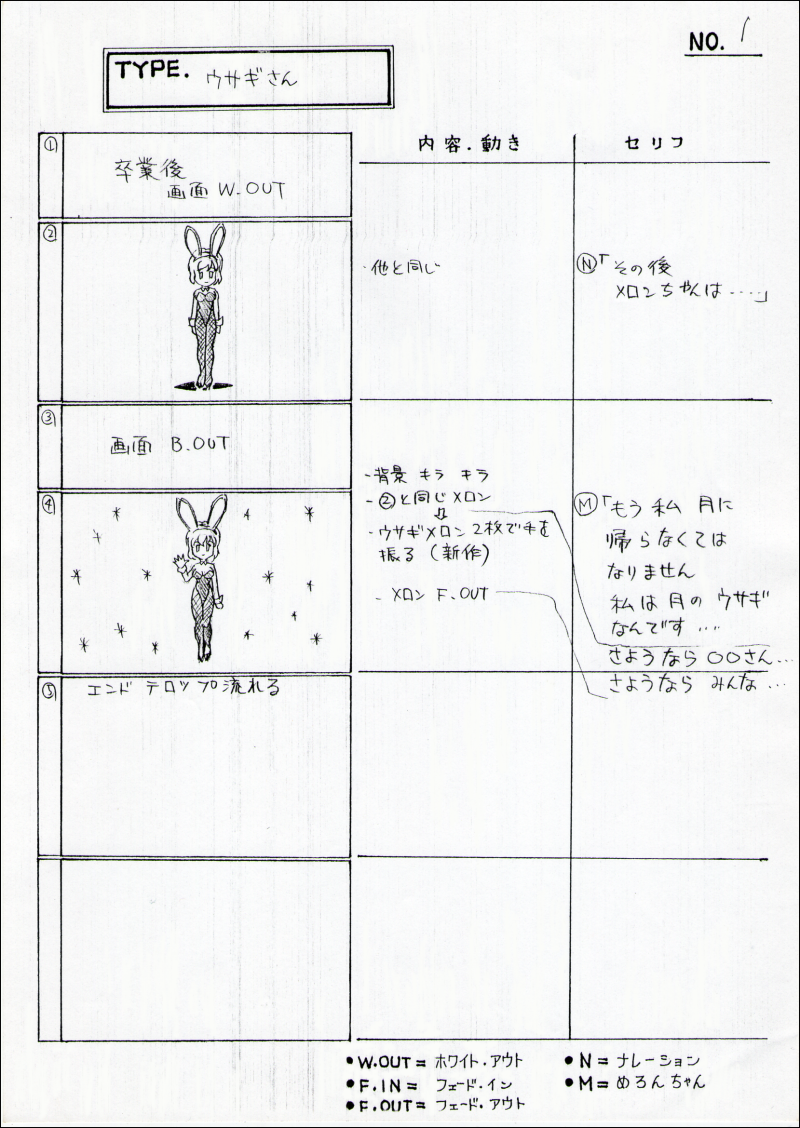 NO. 1
TYPE. ウサギさん
内容.動き
セリフ
①
卒業後
画面 W.OUT
②
・他と同じ
Ⓝ「その後
メロンちゃんは‥‥」
③
画面 B.OUT
④
・背景 キラ キラ
・②と同じメロン
⇩
・ウサギメロン 2枚で手を
振る (新作)
・メロン F.OUT
Ⓜ「もう 私 月に
帰らなくては
なりません
私は月の ウサギ
なんです…
さようなら 〇〇さん…
さようなら みんな…
⑤
エンド テロップ流れる
●W.OUT= ホワイト・アウト
●F.IN= フェード・イン
●F.OUT= フェード・アウト
●N= ナレーション
●M= めろんちゃん